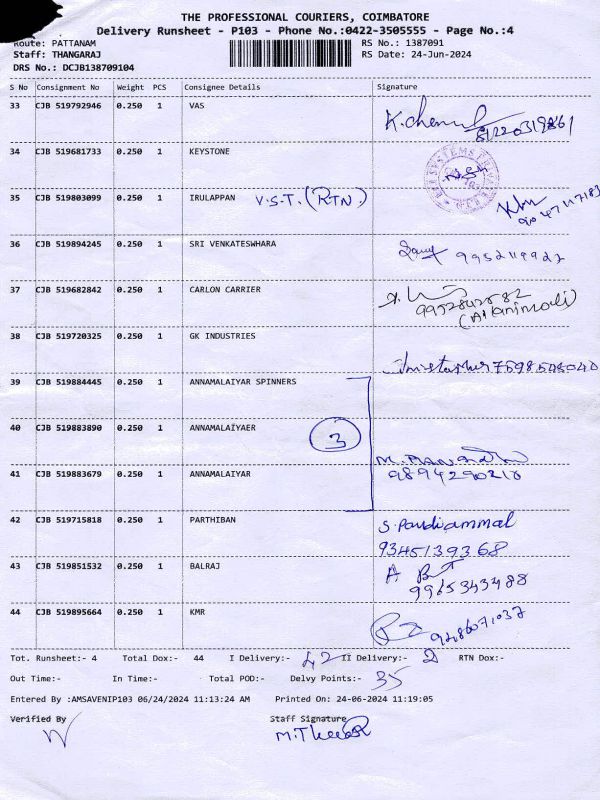 THE PROFESSIONAL COURIERS, COIMBATORE
Delivery Runsheet - P103 - Phone No.:0422-3505555 - Page No.:4
Route: PATTANAM RS No.: 1387091
Staff: THANGARAJ RS Date: 24-Jun-2024
DRS No.: DCJB138709104
S No Consignment No Weight PCS Consignee Details Signature
33 CJB 519792946 0.250 1 VAS
34 CJB 519681733 0.250 1 KEYSTONE
35 CJB 519803099 0.250 1 IRULAPPAN V.S.T. (RTN.)
36 CJB 519894245 0.250 1 SRI VENKATESHWARA
37 CJB 519682842 0.250 1 CARLON CARRIER
38 CJB 519720325 0.250 1 GK INDUSTRIES
39 CJB 519884445 0.250 1 ANNAMALAIYAR SPINNERS
40 CJB 519883890 0.250 1 ANNAMALAIYAER 3
41 CJB 519883679 0.250 1 ANNAMALAIYAR
9894290210
42 CJB 519715818 0.250 1 PARTHIBAN S. Pandiammal
9345139368
43 CJB 519851532 0.250 1 BALRAJ
9965343488
44 CJB 519895664 0.250 1 KMR
Tot. Runsheet:- 4 Total Dox:- 44 I Delivery:- 42 II Delivery:- 2 RTN Dox:-
Out Time:- In Time:- Total POD:- Delvy Points:- 35
Entered By :AMSAVENIP103 06/24/2024 11:13:24 AM Printed On: 24-06-2024 11:19:05
Verified By Staff Signature